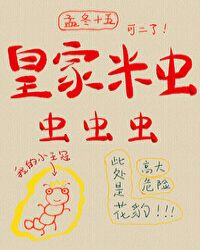 孟冬十五
可二了!
皇家米虫
虫虫虫
我的小王冠
此处是
高大
危险
花豹!!!